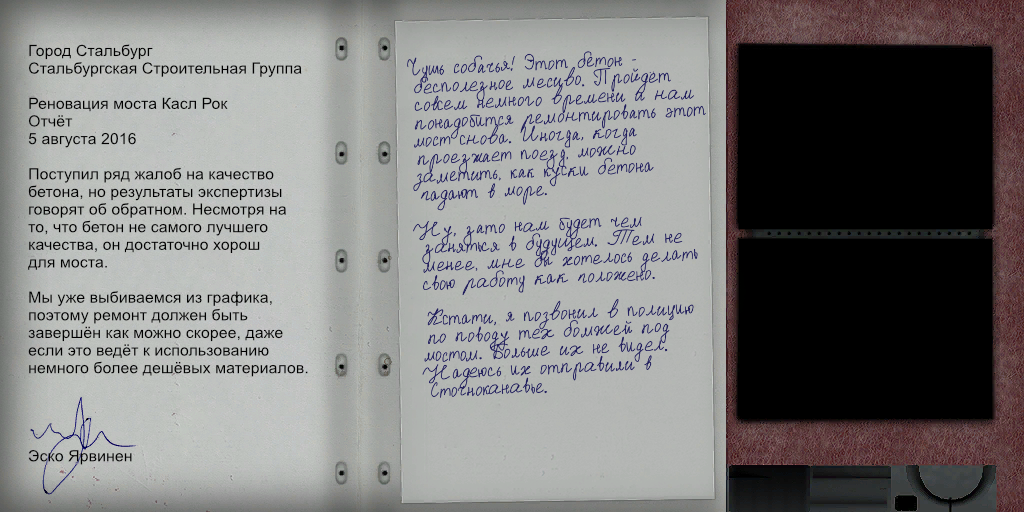 Город Стальбург
Стальбургская Строительная Группа
Реновация моста Касл Рок
Отчёт
5 августа 2016
Поступил ряд жалоб на качество
бетона, но результаты экспертизы
говорят об обратном. Несмотря на
то, что бетон не самого лучшего
качества, он достаточно хорош
для моста.
Мы уже выбиваемся из графика,
поэтому ремонт должен быть
завершён как можно скорее, даже
если это ведёт к использованию
немного более дешёвых материалов.
Эско Ярвинен
Чушь собачья! Этот бетон -
бесполезное месиво. Пройдет
совсем немного времени и нам
понадобится ремонтировать этот
мост снова. Иногда, когда
проезжает поезд, можно
заметить, как куски бетона
падают в море.
Ну, зато нам будет чем
заняться в будущем. Тем не
менее, мне бы хотелось делать
свою работу как положено.
Кстати, я позвонил в полицию
по поводу тех бомжей под
мостом. Больше их не видел.
Надеюсь их отправили в
Сточноканавье.